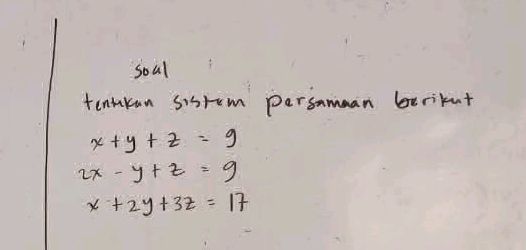 soal
tentukan sistem persamaan berikut
x + y + z = 9
2x - y + z = 9
x + 2y + 3z = 17